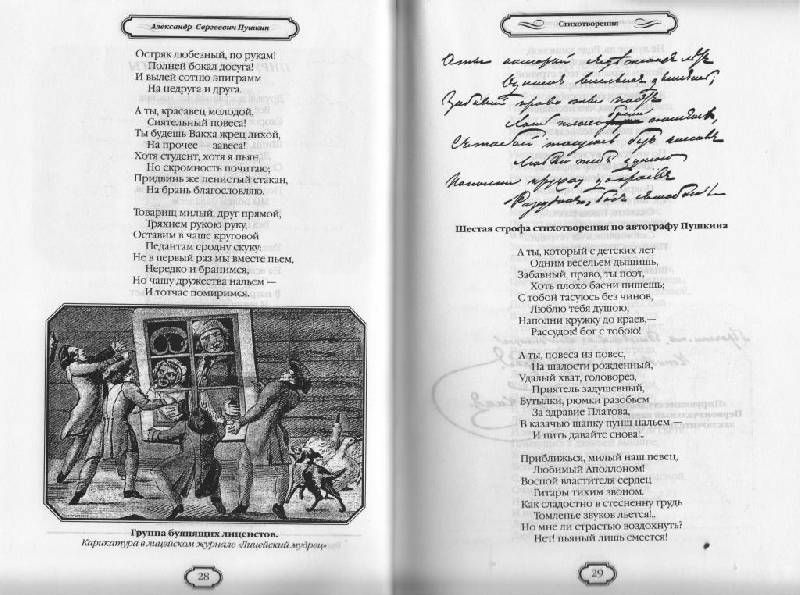 Александр Сергеевич Пушкин
Остряк любезный, по рукам!
Полней бокал досуга!
И вылей сотню эпиграмм
На недруга и друга.
А ты, красавец молодой,
Сиятельный повеса!
Ты будешь Вакха жрец лихой,
На прочее — завеса!
Хотя студент, хотя я пьян,
Но скромность почитаю;
Придвинь же пенистый стакан,
На брань благословляю.
Товарищ милый, друг прямой,
Тряхнем рукою руку,
Оставим в чаше круговой
Педантам сродну скуку:
Не в первый раз мы вместе пьем,
Нередко и бранимся,
Но чашу дружества нальем —
И тотчас помиримся.
Группа буянящих лицеистов.
Карикатура в лицейском журнале «Лицейский мудрец»
28
Стихотворения
Шестая строфа стихотворения по автографу Пушкина
А ты, который с детских лет
Одним весельем дышишь,
Забавный, право, ты поэт,
Хоть плохо басни пишешь;
С тобой тасуюсь без чинов,
Люблю тебя душою,
Наполни кружку до краев,—
Рассудок! бог с тобою!
А ты, повеса из повес,
На шалости рожденный,
Удалый хват, головорез,
Приятель задушевный,
Бутылки, рюмки разобьем
За здравие Платова,
В казачью шапку пунш нальем —
И пить давайте снова!..
Приближься, милый наш певец,
Любимый Аполлоном!
Воспой властителя сердец
Гитары тихим звоном.
Как сладостно в стесненну грудь
Томленье звуков льется!..
Но мне ли страстью воздохнуть?
Нет! пьяный лишь смеется!
29